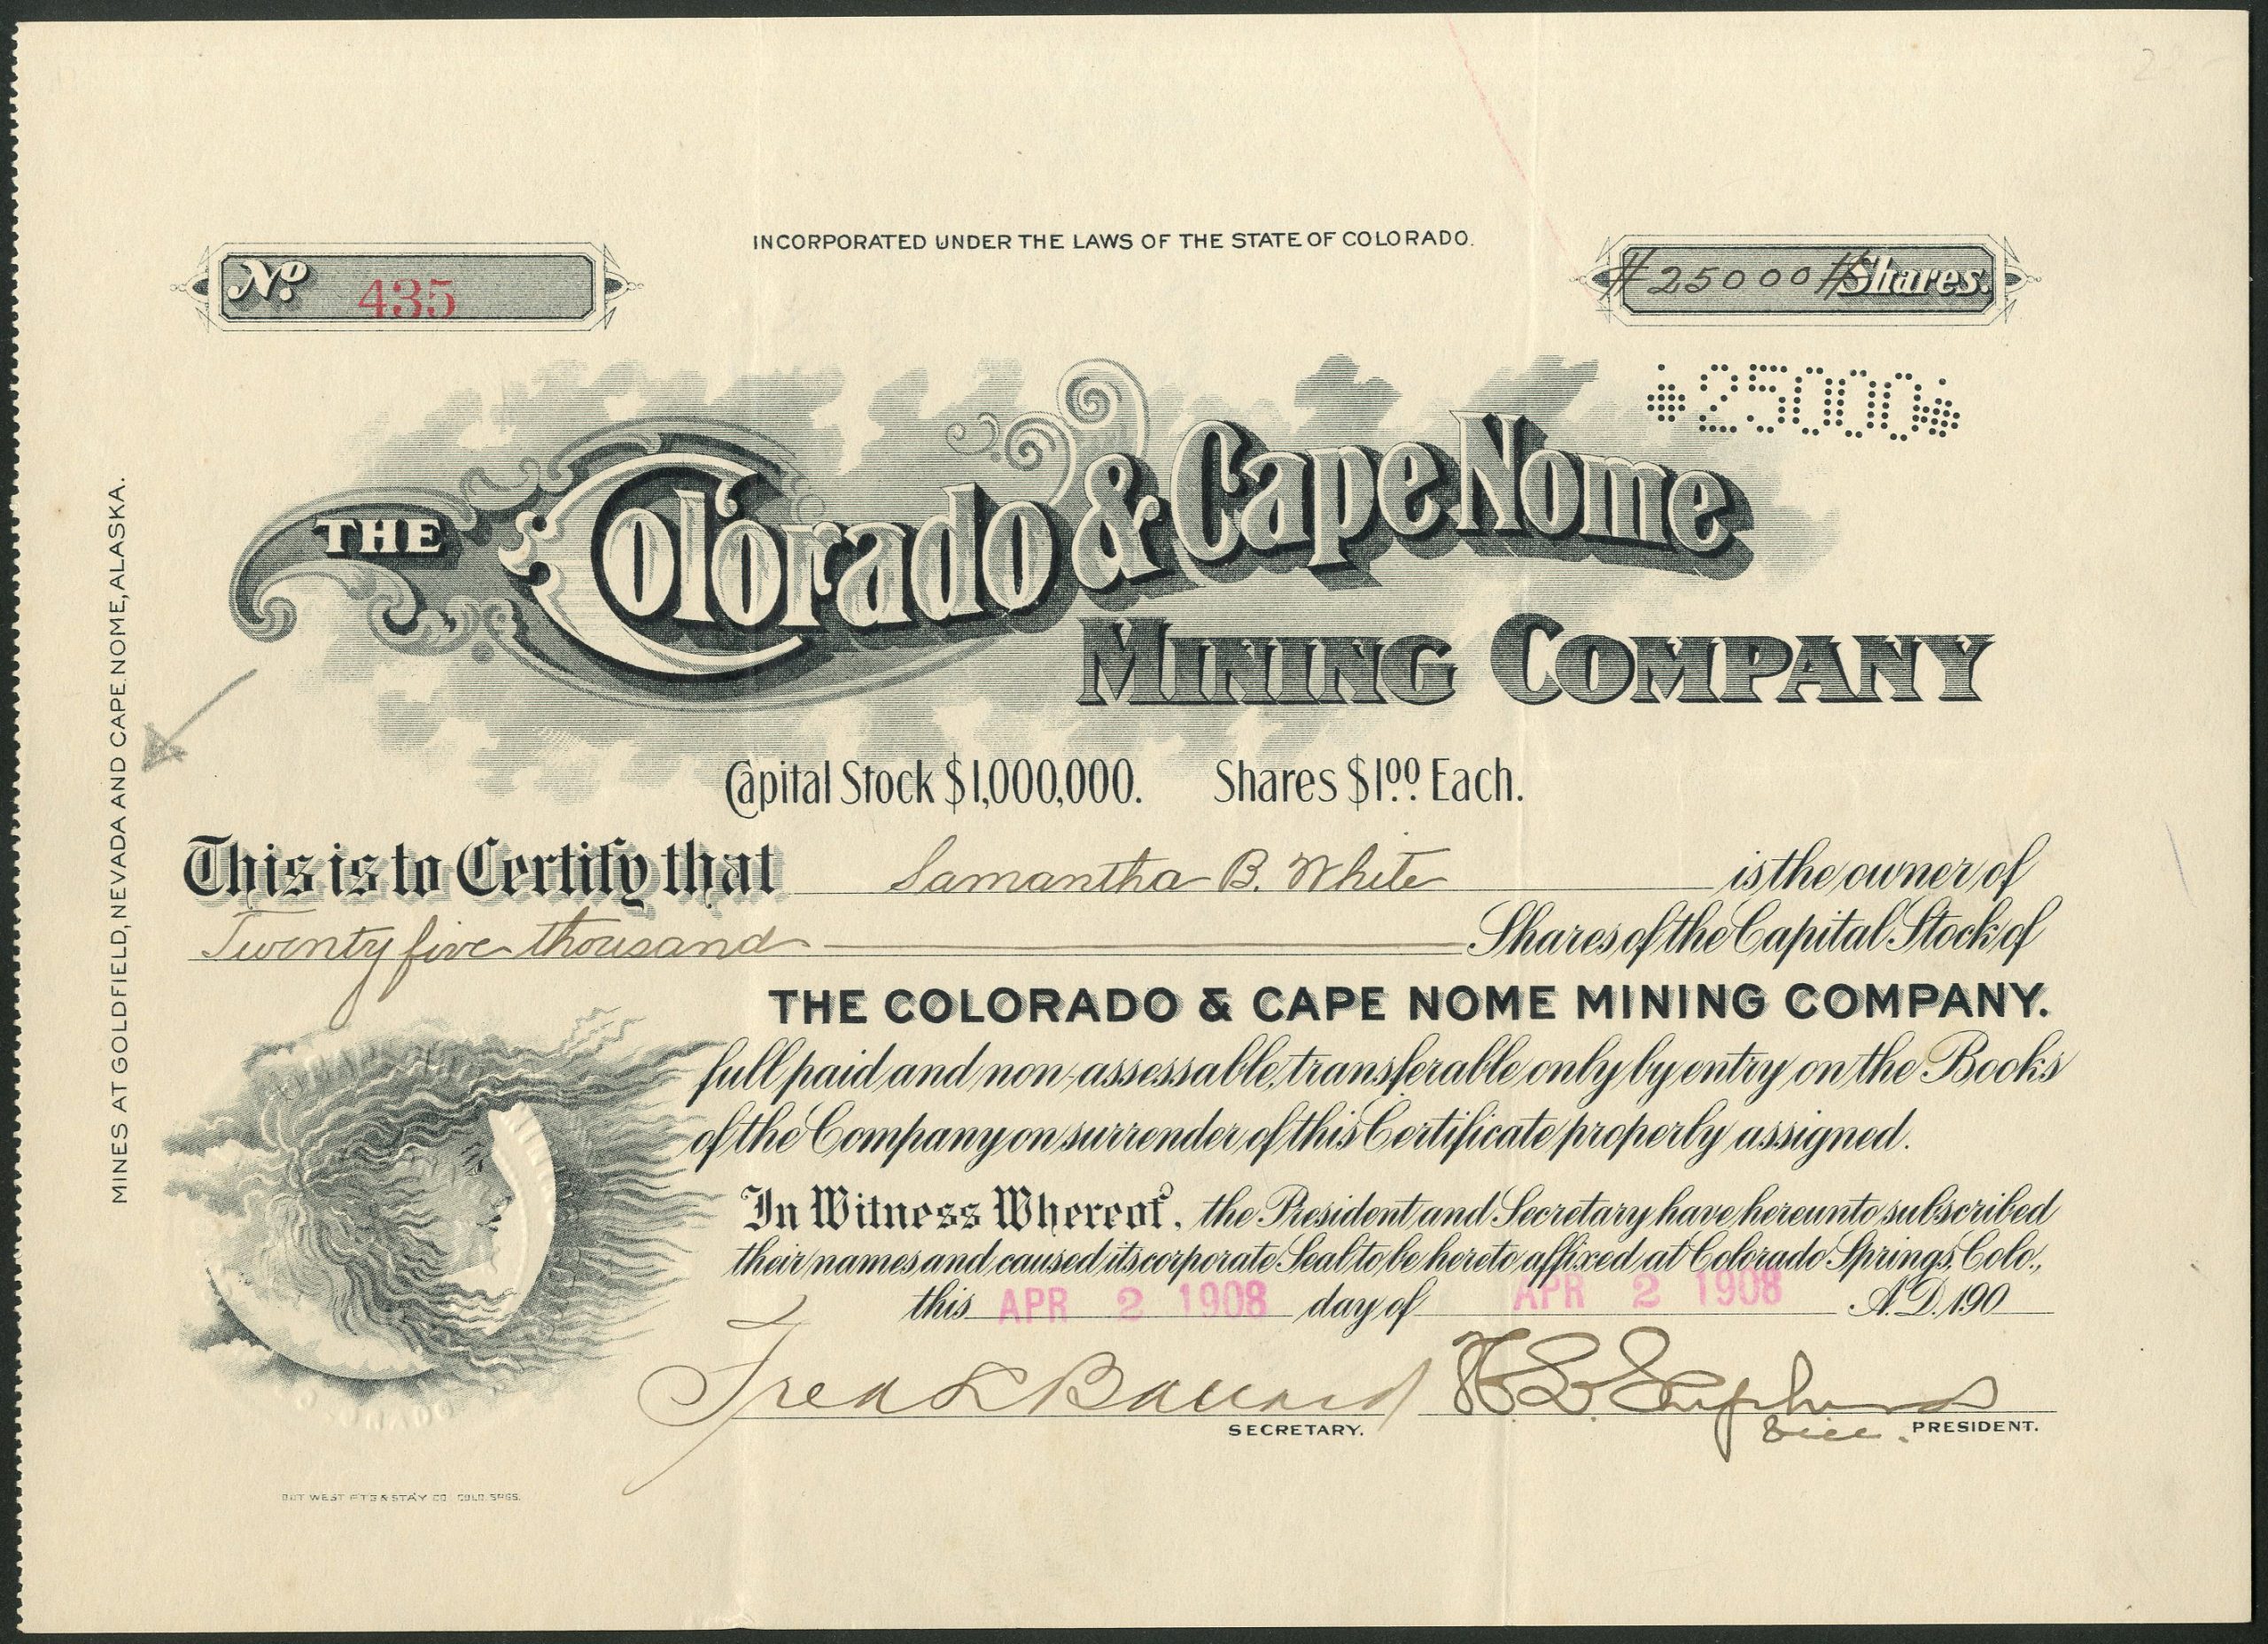 INCORPORATED UNDER THE LAWS OF THE STATE OF COLORADO.
No. 435
#25000# Shares.
25000
THE Colorado & Cape Nome
MINING COMPANY
Capital Stock $1,000,000. Shares $1.00 Each.
This is to Certify that Samantha B. White is the owner of
Twenty five thousand Shares of the Capital Stock of
THE COLORADO & CAPE NOME MINING COMPANY.
full paid and non-assessable, transferable only by entry on the Books
of the Company on surrender of this Certificate properly assigned.
In Witness Whereof, the President and Secretary have hereunto subscribed
their names and caused its corporate Seal to be hereto affixed at Colorado Springs, Colo.,
this APR 2 1908 day of APR 2 1908 A.D. 190
SECRETARY.
Vice. PRESIDENT.
MINES AT GOLDFIELD, NEVADA AND CAPE NOME, ALASKA.
OUT WEST PTG & STA'Y CO. COLO. SPGS.